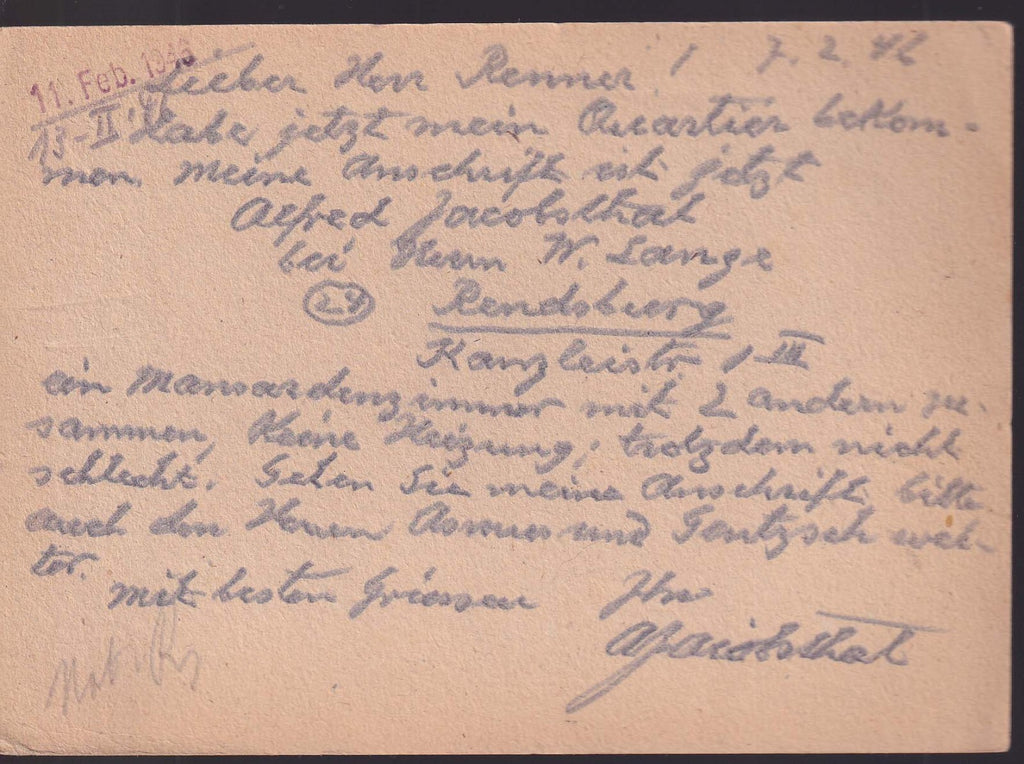 11. Feb. 1946
Lieber Herr Renner! 7.2.46
13-II
Habe jetzt mein Quartier bekom-
men. Meine Anschrift ist jetzt
Alfred Jacobsthal
bei Herrn W. Lange
24 Rendsburg
Kanzleistr. 1 III
ein Mansardenzimmer mit 2 andern zu-
sammen, keine Heizung, trotzdem nicht
schlecht. Geben Sie meine Anschrift bitte
auch den Herren Asmus und Gentzsch wei-
ter.
Mit besten Grüssen Ihr
AJacobsthal